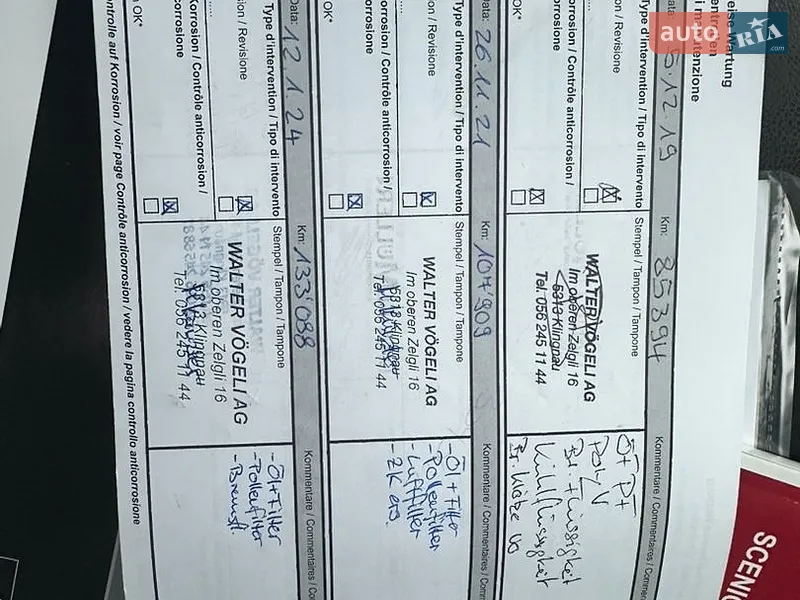 eise Wartung
entretien
i manutenzione
Data: 5.12.19
Km: 85394
Kommentare / Commentaires / Com
Type d'intervention / Tipo di intervento
Stempel / Tampon / Tampone
on / Revisione
Contrôle anticorrosion /
rrosione
OK*
WALTER VÖGELI AG
Im oberen Zelgli 16
5313 Klingnau
Tel. 056 245 11 44
Öl + Pf
Poly V
Br + flüssigkeit
Kühlflüssigkeit
Br. klötze vo
Data: 26.11.21
Km: 104'909
Kommentare / Commentaires / Com
Type d'intervention / Tipo di intervento
Stempel / Tampon / Tampone
on / Revisione
Contrôle anticorrosion /
rrosione
OK*
WALTER VÖGELI AG
Im oberen Zelgli 16
5313 Klingnau
Tel. 056 245 11 44
- Öl + Filter
- Pollenfilter
- Luftfilter
- ZK ers.
Data: 12.1.24
Km: 133'088
Kommentare / Commentaires / Com
Type d'intervention / Tipo di intervento
Stempel / Tampon / Tampone
ion / Revisione
/ Contrôle anticorrosion /
orrosione
n OK*
WALTER VÖGELI AG
Im oberen Zelgli 16
5313 Klingnau
Tel. 056 245 11 44
- Öl + Filter
- Pollenfilter
- Bremsfl.
ontrolle auf Korrosion / voir page Contrôle anticorrosion / vedere la pagina controllo anticorrosione
SCENIC
auto RIA
.com